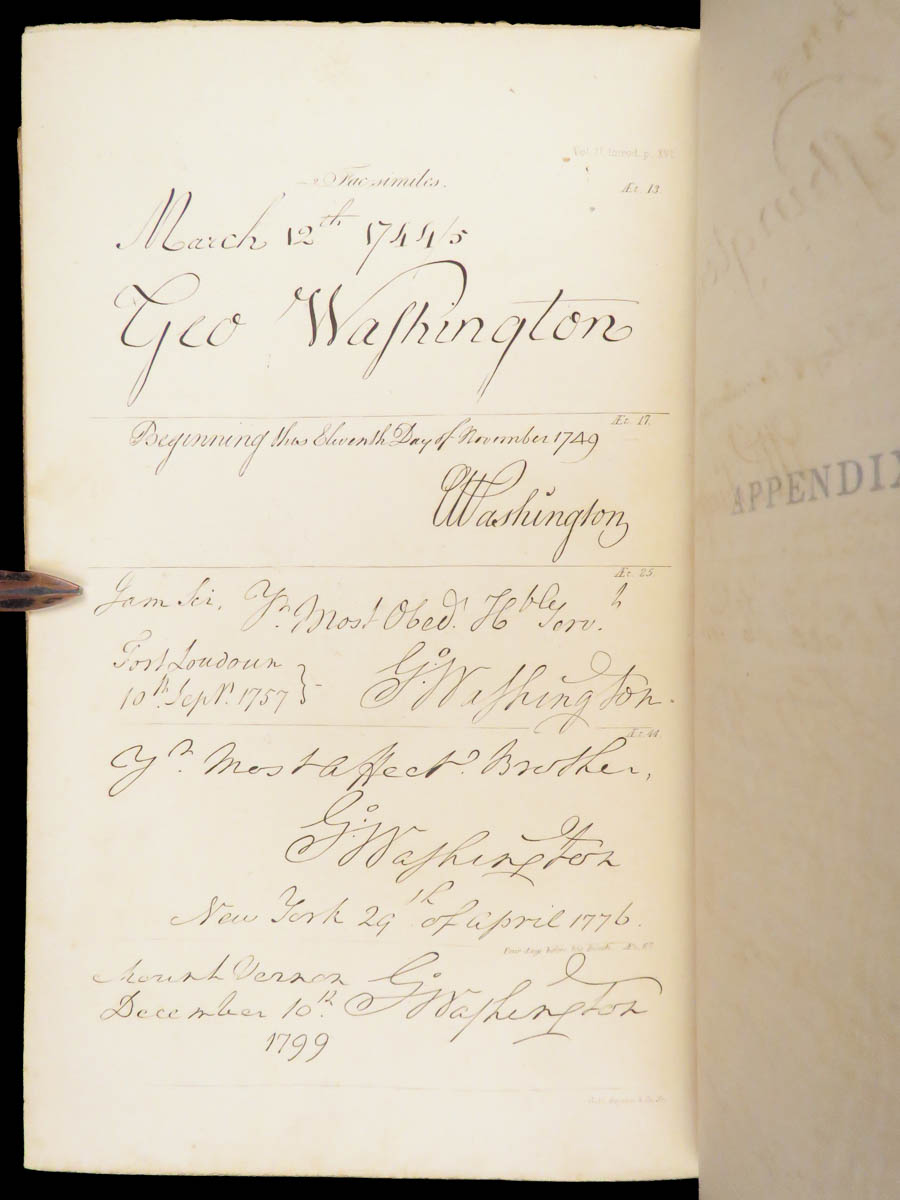 Vol. II. Introd. p. XVI.
Fac-similes.
Æt. 13.
March 12th 1744/5
Geo Washington
Æt. 17.
Beginning this Eleventh Day of November 1749
GWashington
Æt. 25.
I am Sir, Yr Most Obedt Hble Servt
Fort Loudoun
10th Sepr 1757
Go: Washington.
Æt. 44.
Yr Most Affecte Brother,
Go: Washington
New York 29th of April 1776.
Four days before his death. Æt. 67.
Mount Vernon
December 10th
Go: Washington
1799
APPENDIX